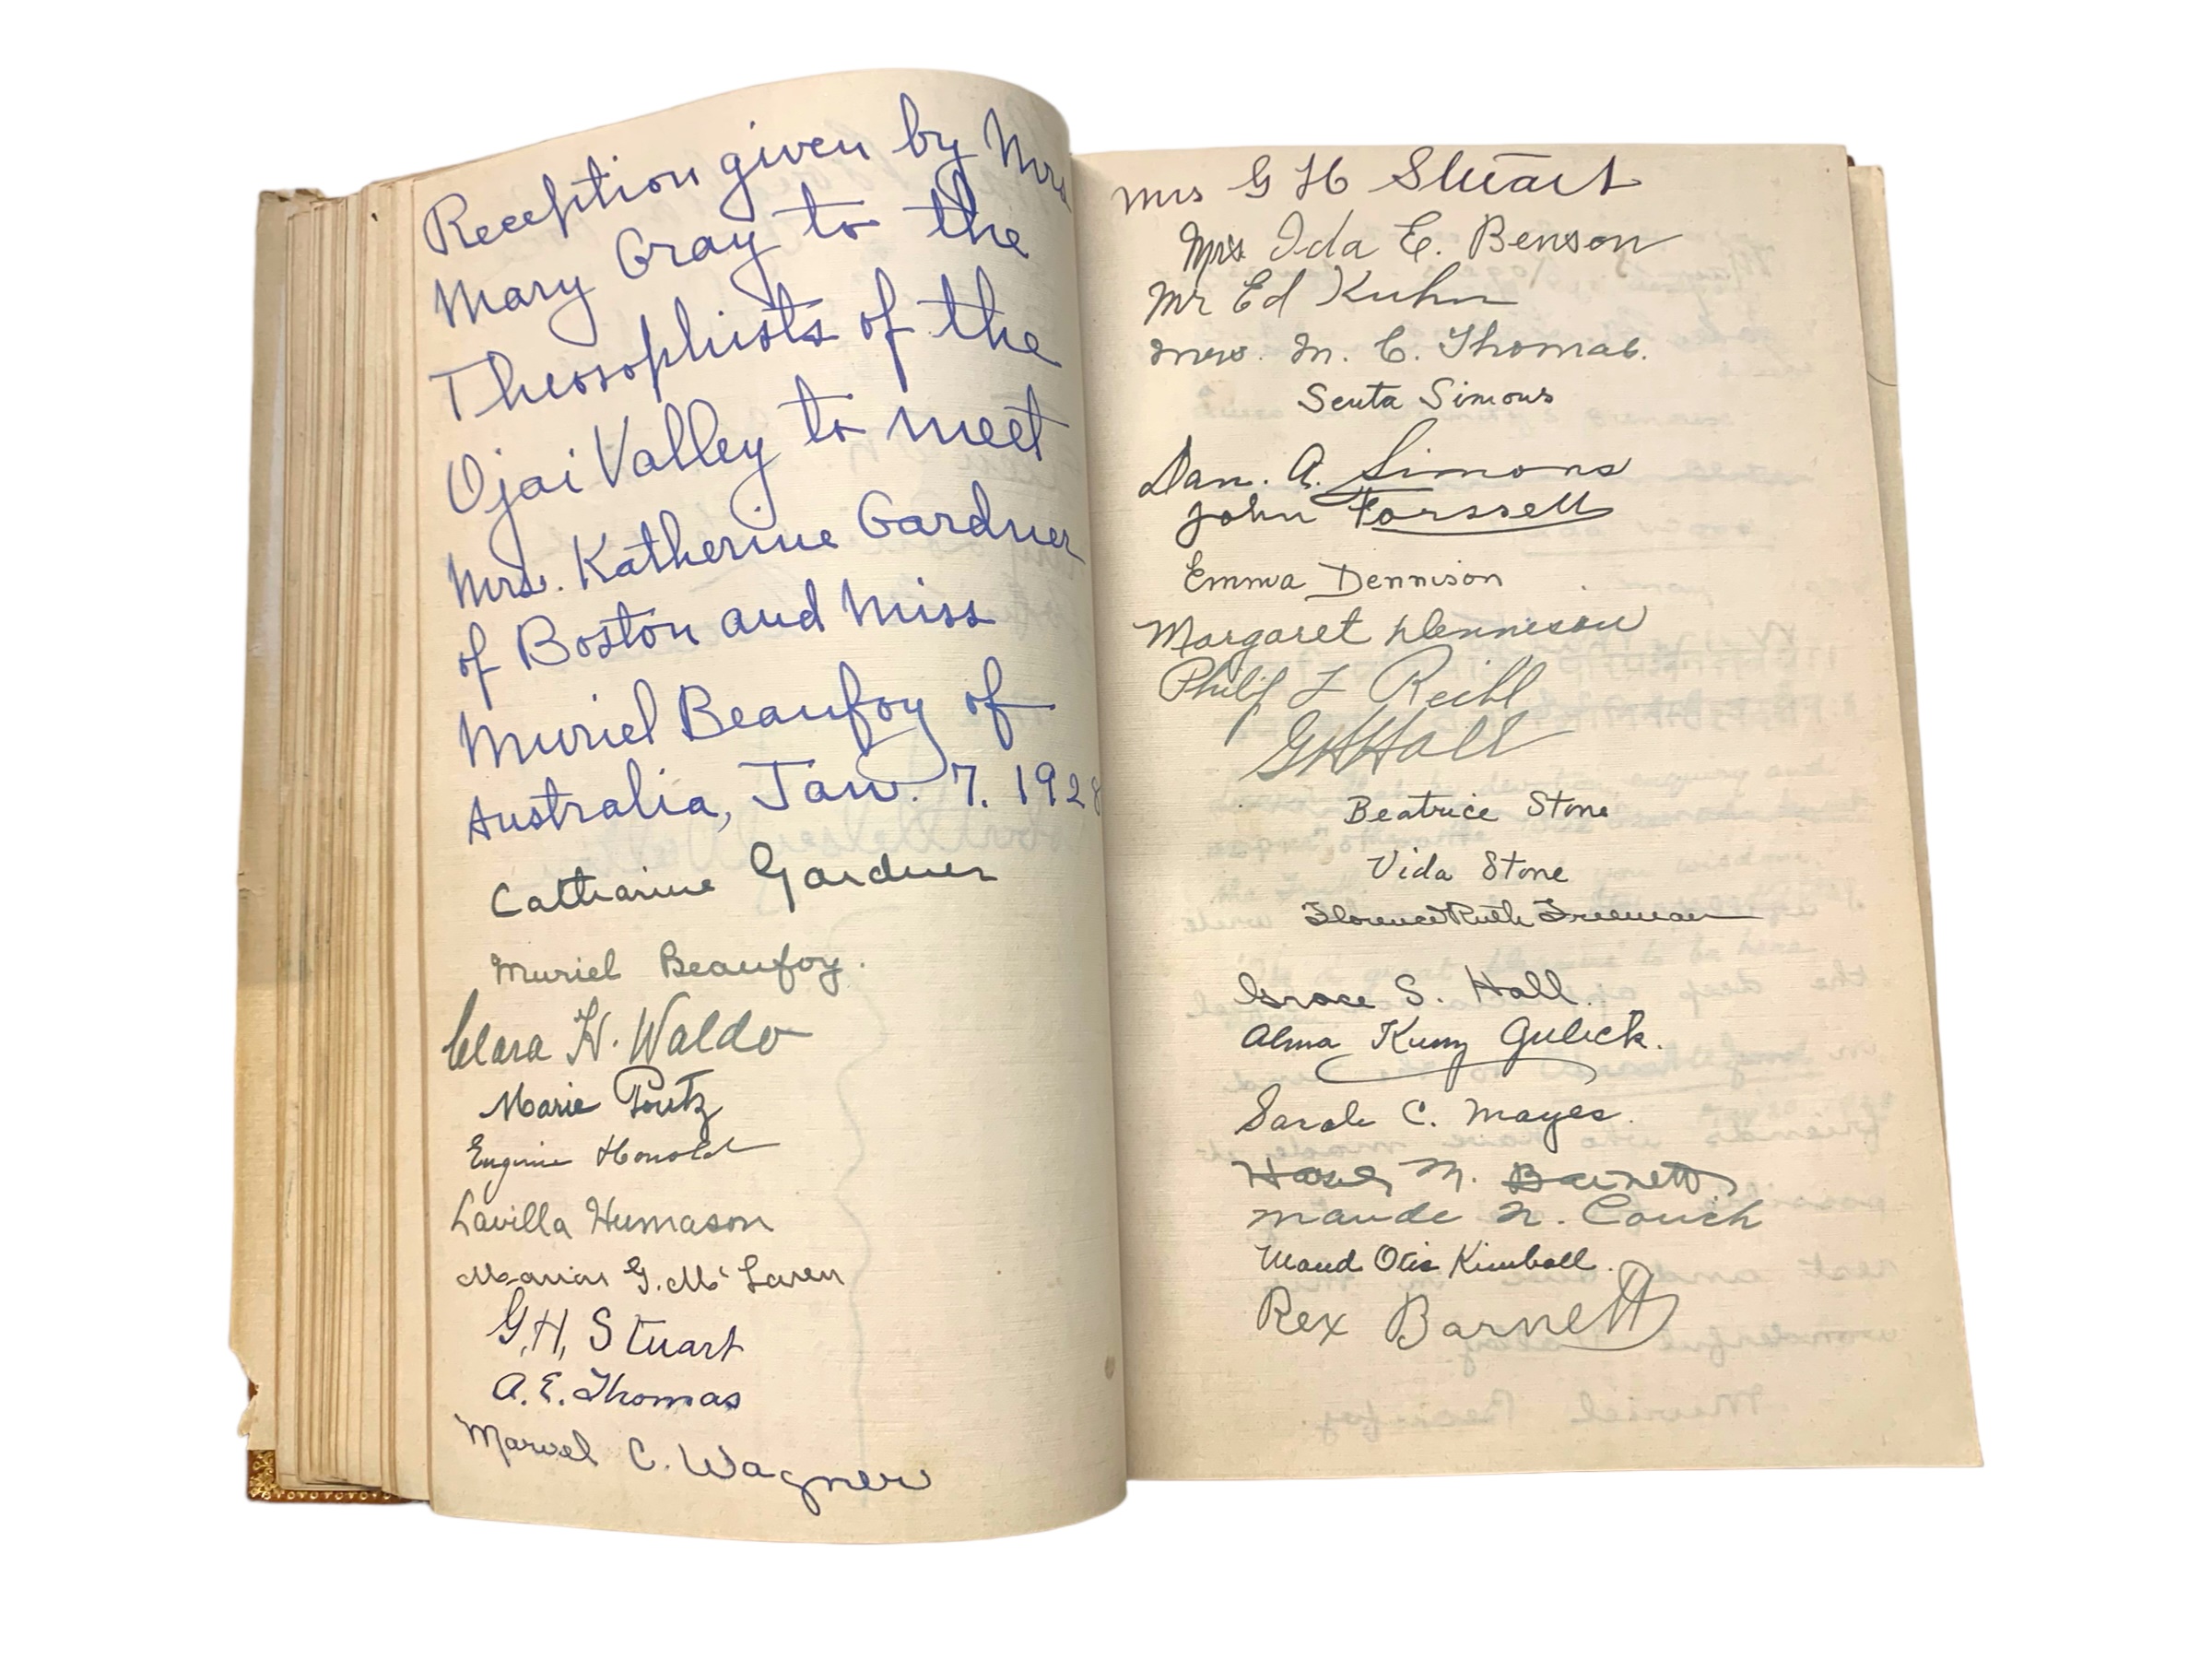 Reception given by Mrs
Mary Gray to the
Theosophists of the
Ojai Valley to meet
Mrs. Katherine Gardner
of Boston and Miss
Muriel Beaufoy of
Australia, Jan. 7. 1928
Catharine Gardner
Muriel Beaufoy.
Clara H. Waldo
Marie Poutz
Eugene Honold
Lavilla Humason
Marion G. McLaren
G. H. Stuart
A. E. Thomas
Marvel C. Wagner
Mrs G H Stuart
Mrs Ida E. Benson
Mr Ed Kuhn
Mrs. M. C. Thomas.
Senta Simons
Dan. A. Simons
John Forssell
Emma Dennison
Margaret Dennison
Philip F Reihl
GHHall
Beatrice Stone
Vida Stone
Florence Ruth Freeman
Grace S. Hall.
Alma Kunz Gulick.
Sarah C. Mayes.
Hazel M. Barnett
Maude N. Couch
Maud Otis Kimball.
Rex Barnett